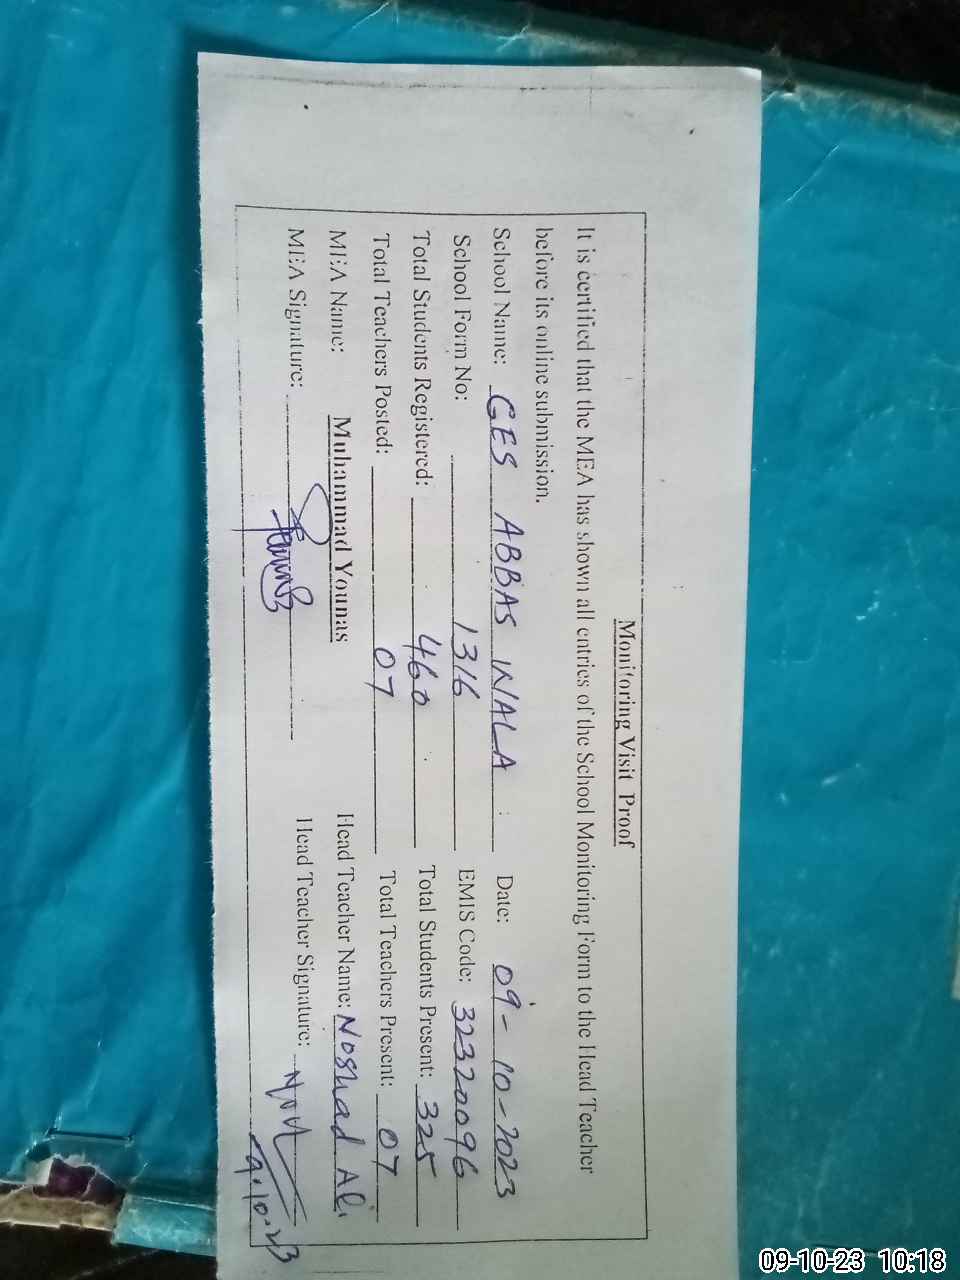 Monitoring Visit Proof
It is certified that the MEA has shown all entries of the School Monitoring Form to the Head Teacher
before its online submission.
School Name: GES ABBAS WALA Date: 09-10-2023
School Form No: 1316 EMIS Code: 32320096
Total Students Registered: 460 Total Students Present: 325
Total Teachers Posted: 07 Total Teachers Present: 07
MEA Name: Muhammad Younas Head Teacher Name: Noshad Ali
MEA Signature: Head Teacher Signature:
9.10.23
09-10-23 10:18